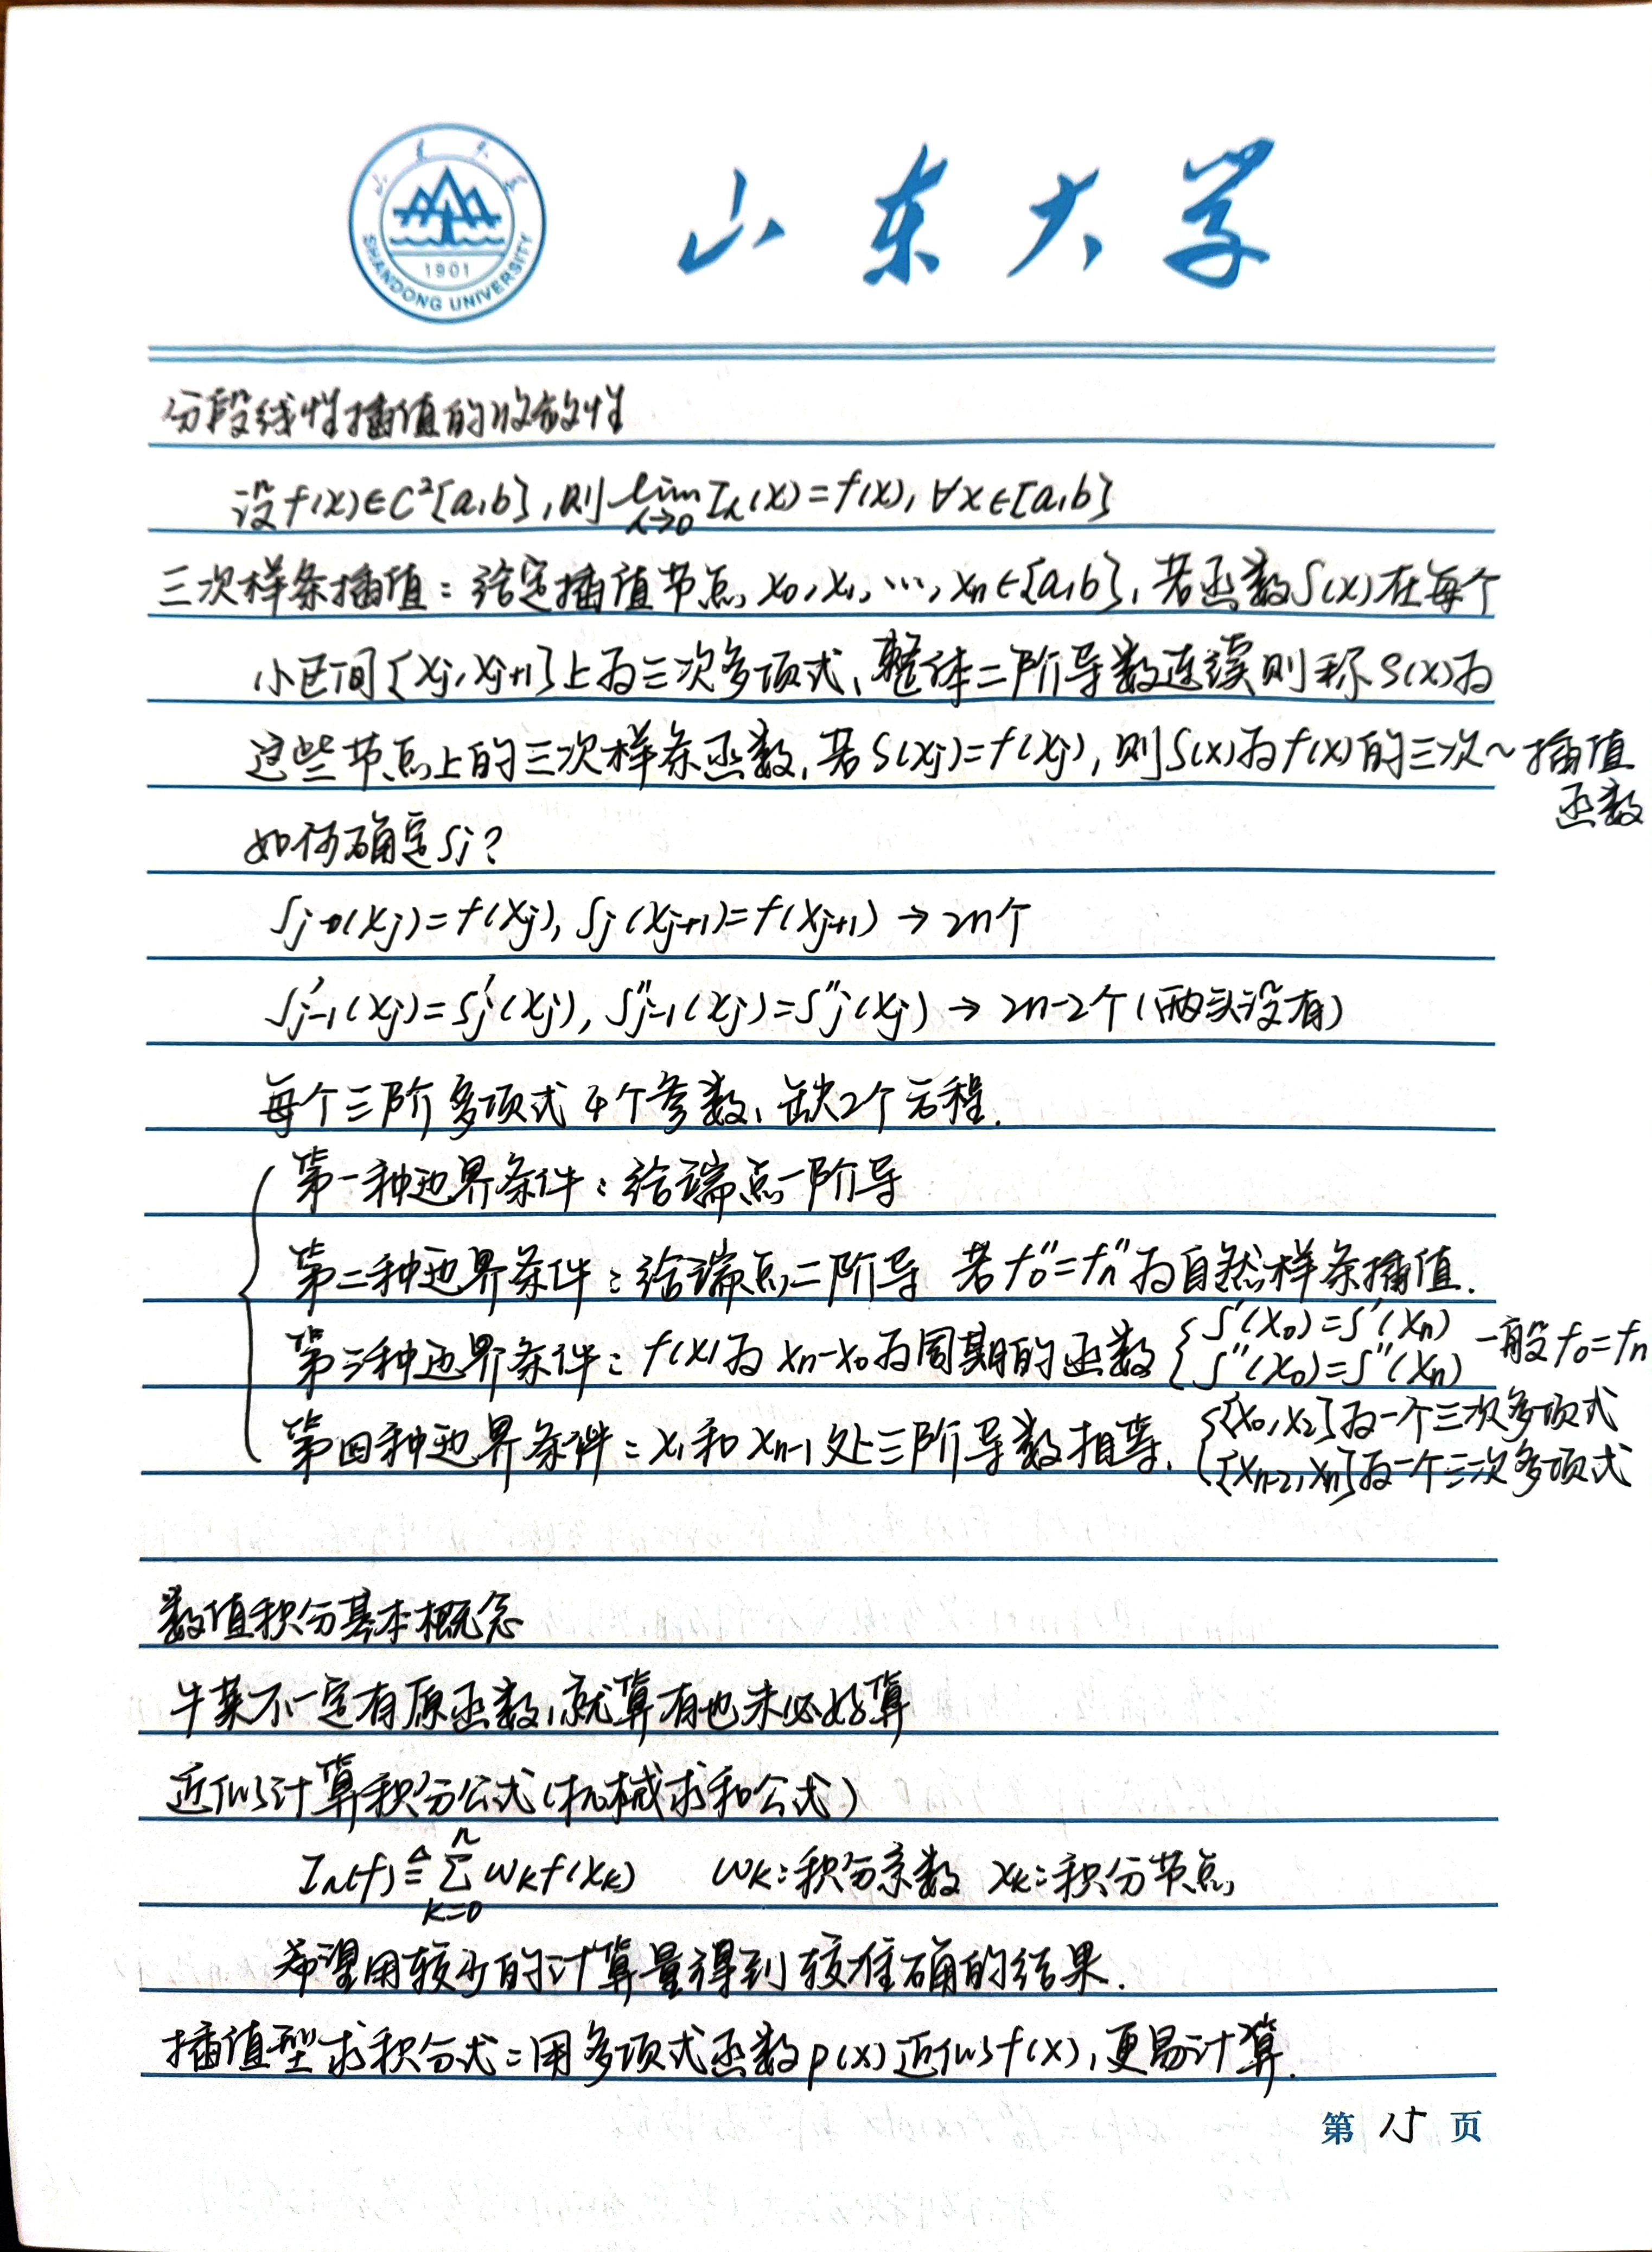 山东大学
SHANDONG UNIVERSITY
1901
分段线性插值的收敛性
设f(x)∈C²[a,b],则lim Iₕ(x)=f(x),∀x∈[a,b]
h→0
三次样条插值:给定插值节点x₀,x₁,…,xₙ∈[a,b],若函数S(x)在每个
小区间[xj,xj+1]上为三次多项式,整体二阶导数连续则称S(x)为
这些节点上的三次样条函数,若S(xj)=f(xj),则S(x)为f(x)的三次~插值
函数
如何确定Sj?
Sj(xj)=f(xj),Sj(xj+1)=f(xj+1)→2n个
S'j-1(xj)=S'j(xj),S''j-1(xj)=S''j(xj)→2n-2个(两头没有)
每个三阶多项式4个参数,缺2个方程.
第一种边界条件:给端点一阶导
第二种边界条件:给端点二阶导 若f₀''=fₙ''为自然样条插值.
第三种边界条件:f(x)为xₙ-x₀为周期的函数{S'(x₀)=S'(xₙ) 一般f₀=fₙ
S''(x₀)=S''(xₙ)
第四种边界条件:x₁和xₙ₋₁处三阶导数相等.{[x₀,x₂]为一个三次多项式
[xₙ₋₂,xₙ]为一个三次多项式
数值积分基本概念
牛莱不一定有原函数,就算有也未必好算
近似计算积分公式(机械求和公式)
Iₙ(f)≜∑ⁿₖ₌₀ωₖf(xₖ) ωₖ:积分系数 xₖ:积分节点
希望用较少的计算量得到较准确的结果.
插值型求积分式:用多项式函数p(x)近似f(x),更易计算.
第15页